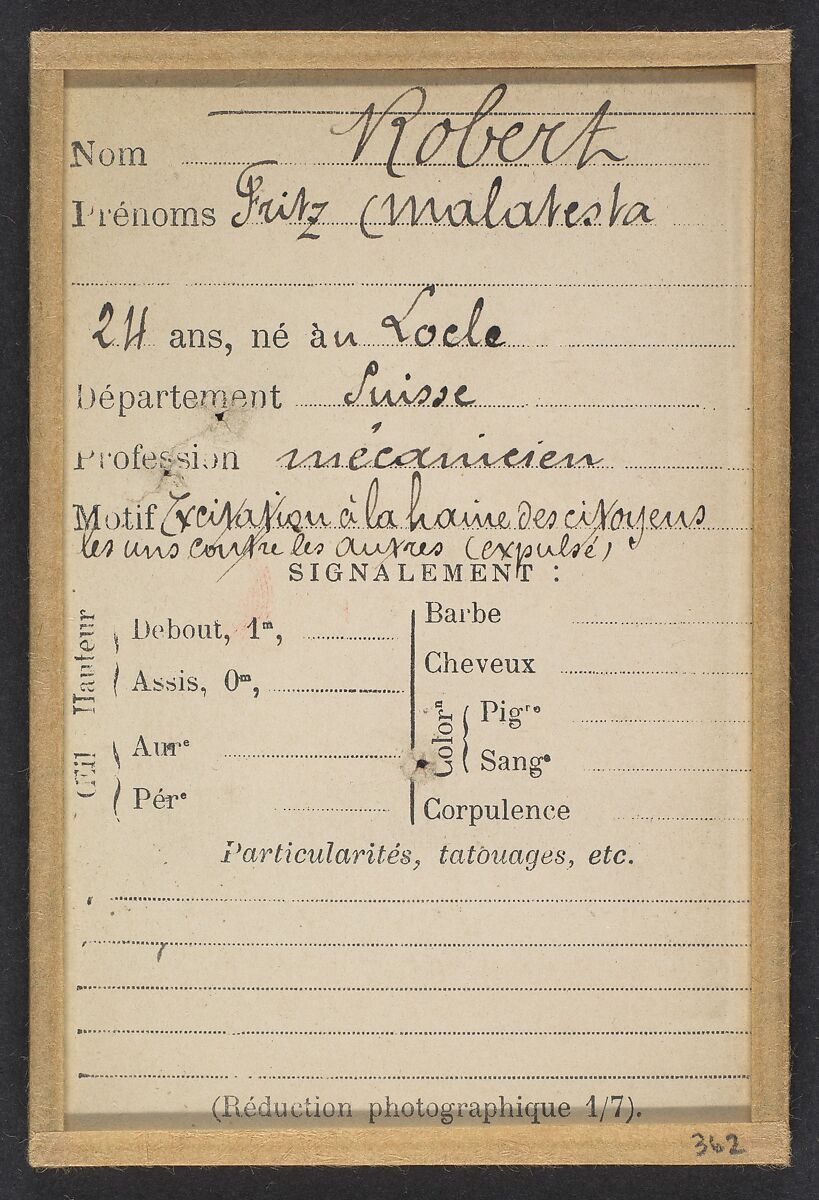 Nom Robert
Prénoms Fritz (Malatesta
24 ans, né àu Locle
Département Suisse
Profession mécanicien
Motif Excitation à la haine des citoyens
les uns contre les autres (expulsé)
SIGNALEMENT :
Hauteur
Debout, 1m,
Assis, 0m,
Œil
Aure
Pére
Barbe
Cheveux
Colorn
Pigre
Sange
Corpulence
Particularités, tatouages, etc.
(Réduction photographique 1/7).
362